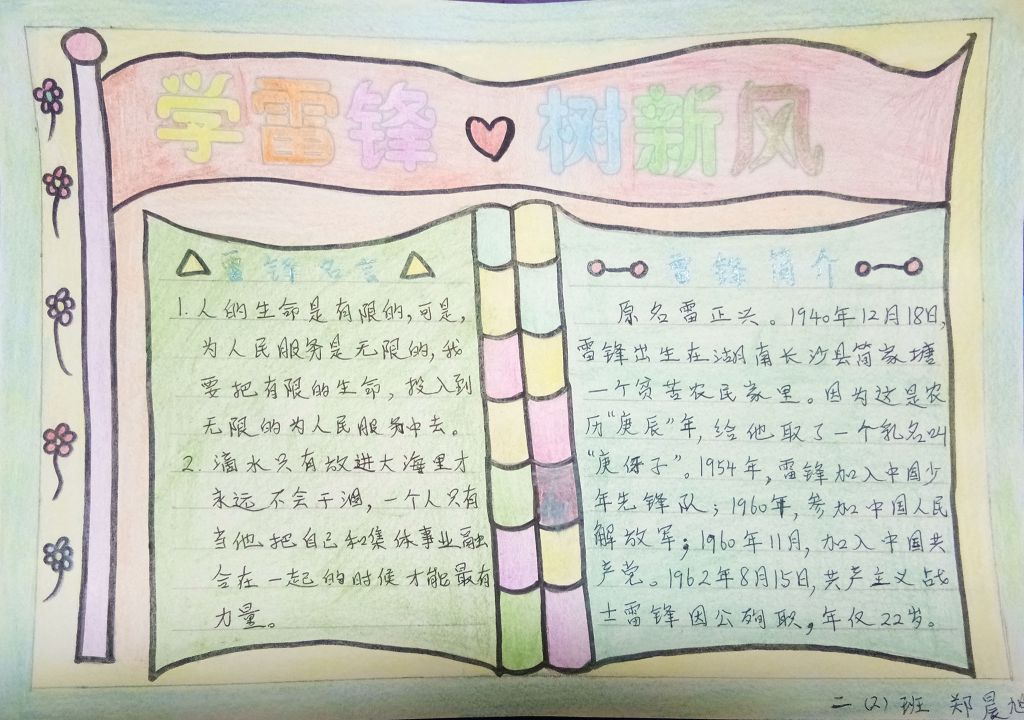 学雷锋 树新风
雷锋名言
1. 人的生命是有限的,可是,
为人民服务是无限的,我
要把有限的生命,投入到
无限的为人民服务中去。
2. 滴水只有放进大海里才
永远不会干涸,一个人只有
当他把自己和集体事业融
合在一起的时候才能最有
力量。
雷锋简介
原名雷正兴。1940年12月18日,
雷锋出生在湖南长沙县简家塘
一个贫苦农民家里。因为这是农
历“庚辰”年,给他取了一个乳名叫
“庚伢子”。1954年,雷锋加入中国少
年先锋队;1960年,参加中国人民
解放军;1960年11月,加入中国共
产党。1962年8月15日,共产主义战
士雷锋因公殉职,年仅22岁。
二(2)班 郑晨旭